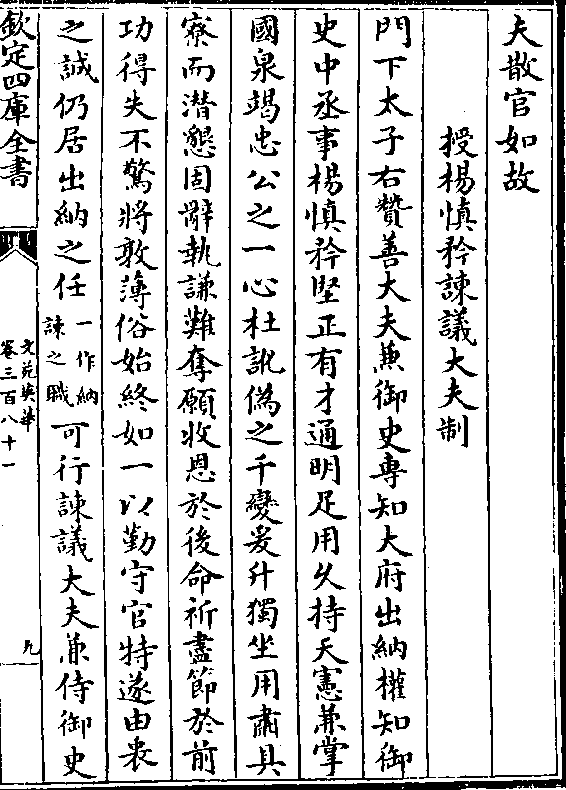 夫散官如故
授楊慎矜諫議大夫制
門下太子右贊善大夫兼御史專知大府出納權知御
史中丞事楊慎矜堅正有才通明足用久持天憲兼掌
國泉竭忠公之一心杜訛偽之千變爰升獨坐用肅具
寮而潛懇固辭執謙難奪願收恩於後命祈盡節於前
功得失不驚將敦薄俗始終如一以勤守官特遂由衷
之誠仍居出納之任一作納諫之職可行諫議大夫兼侍御史
欽定四庫全書
文苑英華
卷三百八十一
九